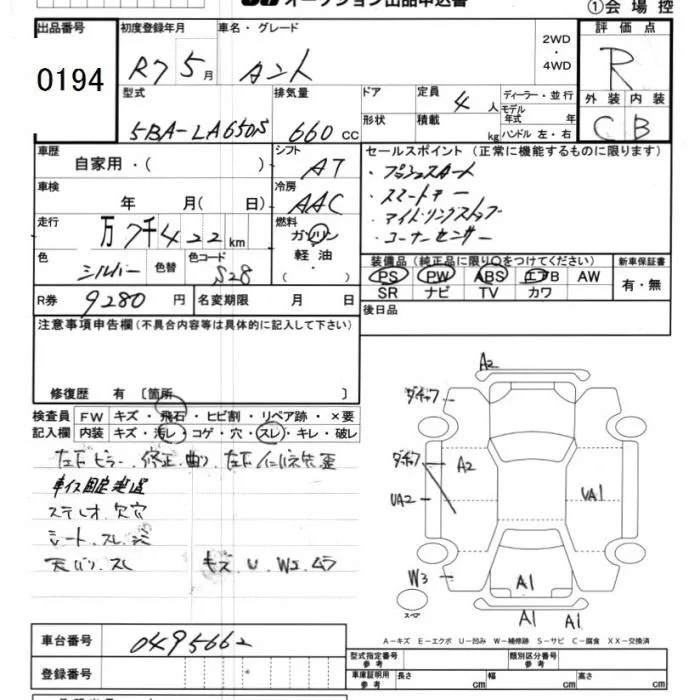 オークション出品申込書
①会場控
出品番号 初度登録年月 車名・グレード 2WD・4WD 評価点
0194 R7 5月 タント R
型式 排気量 ドア 定員 4人 ディーラー・並行 外装 内装
5BA-LA650S 660cc 形状 積載 kg モデル年式 年 C B
ハンドル 左・右
車歴 自家用・( ) シフト AT セールスポイント (正常に機能するものに限ります)
・プッシュスタート
車検 年 月( 日) 冷房 AAC ・スマートキー
・アイドリングストップ
走行 万7千422km 燃料 ガソリン ・コーナーセンサー
軽油
( )
色 シルバー 色替 色コード S28 装備品(純品品に限り○をつけてください) 新車保証書
PS PW ABS エアB AW 有・無
SR ナビ TV カワ
R券 9280円 名変期限 月 日 後日品
注意事項申告欄(不具合内容等は具体的に記入して下さい)
修復歴 有 〔箇所 〕
検査員 FW キズ・飛石・ヒビ割・リペア跡・×要
記入欄 内装 キズ・汚レ・コゲ・穴・スレ・キレ・破レ
左F ピラー 修正、曲り、左F インパネ先歪
ステレオ欠穴
シート、スレ
天バリ、スレ キズ、U、W2、ムラ
A2
A2
UA2
UA1
W3
A1
A1 A1
スペア
A-キズ E-エクボ U-凹み W-補修跡 S-サビ C-腐食 XX-交換済
車台番号 0495662
型式指定番号 参考 類別区分番号 参考
登録番号 車庫証明用 参考 長さ cm 幅 cm 高さ cm